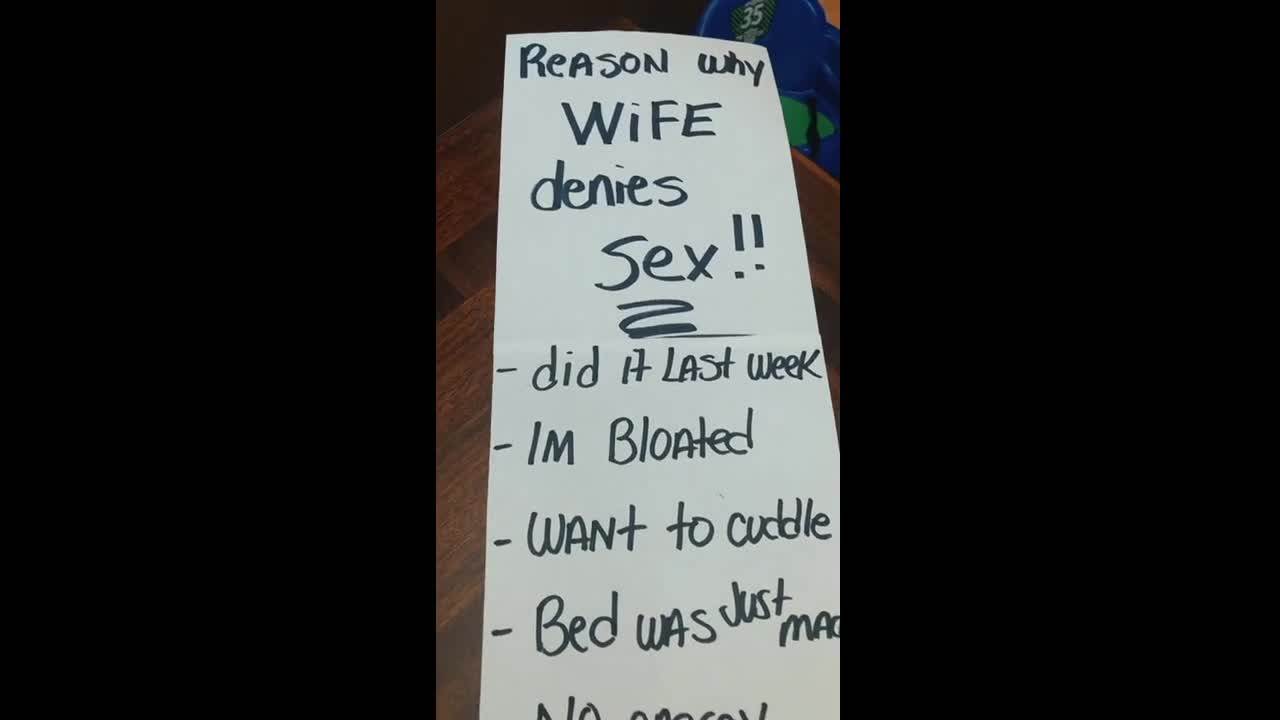 35
ReASON why
WiFE
denies
Sex!!
- did it LAST week
- IM BloAted
- WANT to cuddle
- Bed WAS Just
No